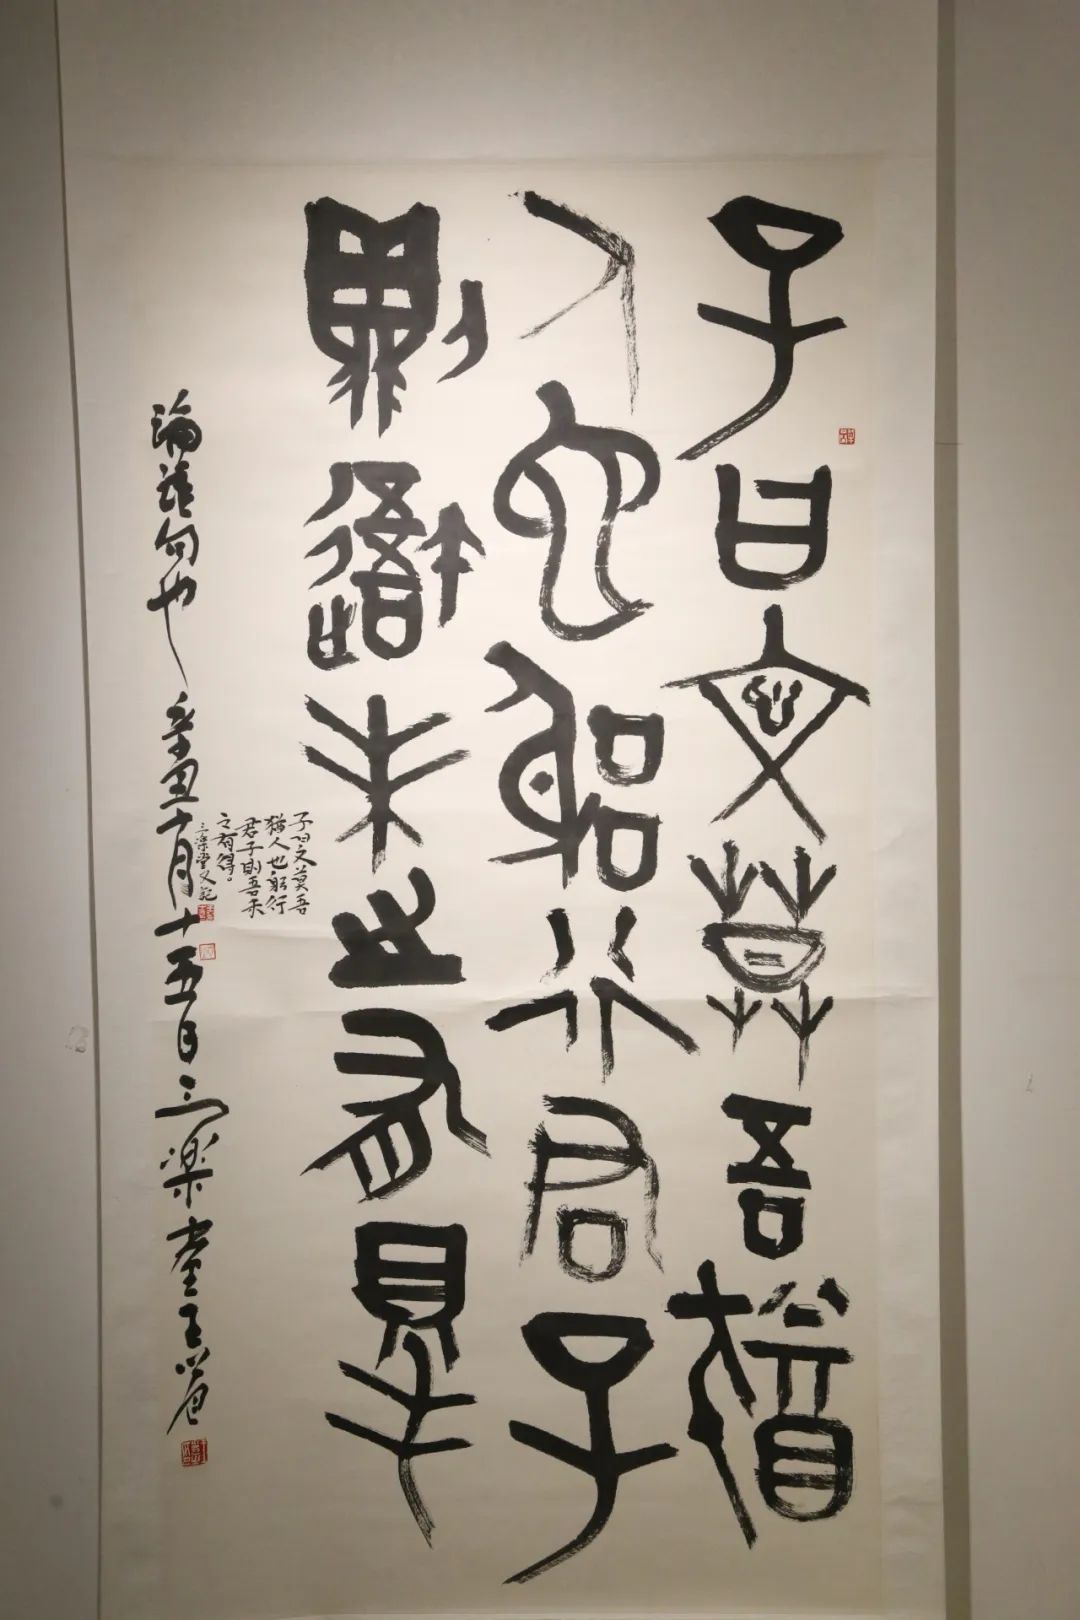 子曰文莫吾猶
人也躳行君子
則䢩未之有得
子曰文莫吾
猶人也躬行
君子則吾未
之有得。
三楽堂又記
論語句也辛丑十月十五日三楽堂王